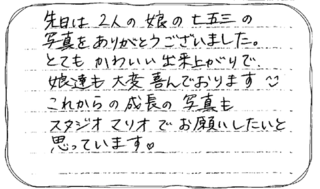 先日は2人の娘の七五三の
写真をありがとうございました。
とてもかわいい出来上がりで、
娘達も大変喜んでおります
これからの成長の写真も
スタジオマリオでお願いしたいと
思っています。